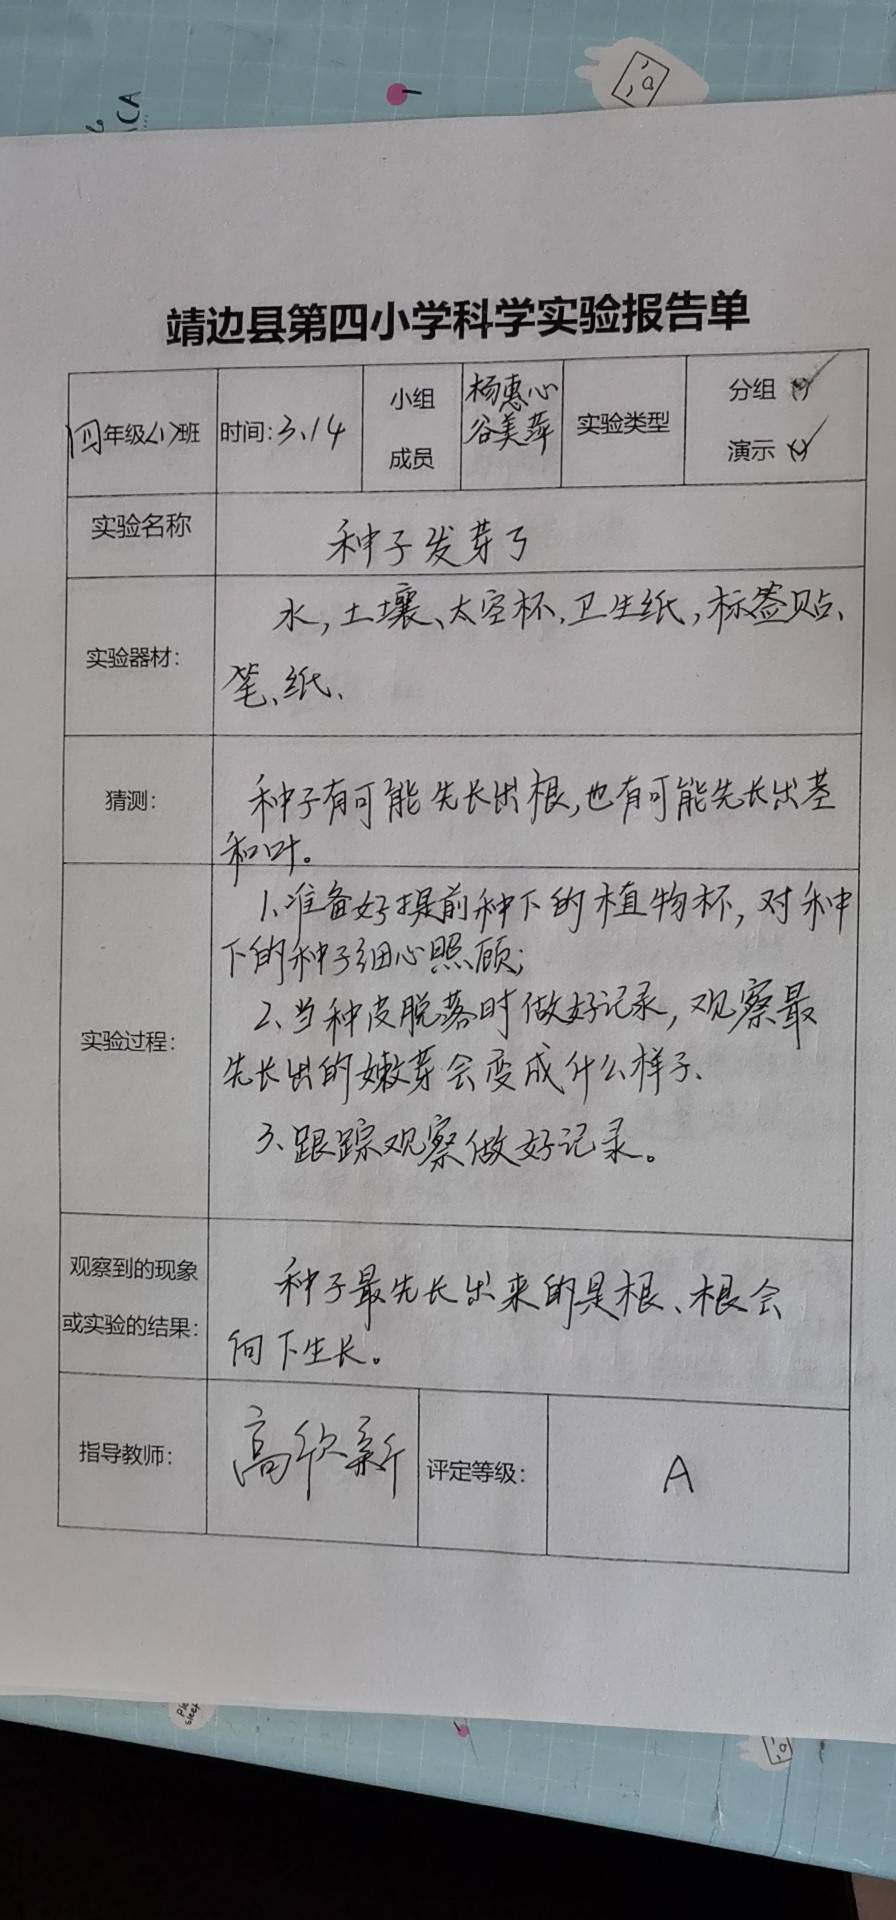 靖边县第四小学科学实验报告单
四年级(1)班
时间:3.14
小组
成员
杨惠心
谷美萍
实验类型
分组(√)
演示(√)
实验名称
种子发芽了
实验器材:
水,土壤、太空杯,卫生纸,标签贴、
笔、纸、
猜测:
种子有可能先长出根,也有可能先长出茎
和叶。
实验过程:
1、准备好提前种下的植物杯,对种
下的种子细心照顾;
2、当种皮脱落时做好记录,观察最
先长出的嫩芽会变成什么样子、
3、跟踪观察做好记录。
观察到的现象
或实验的结果:
种子最先长出来的是根、根会
向下生长。
指导教师:
高欣新
评定等级:
A